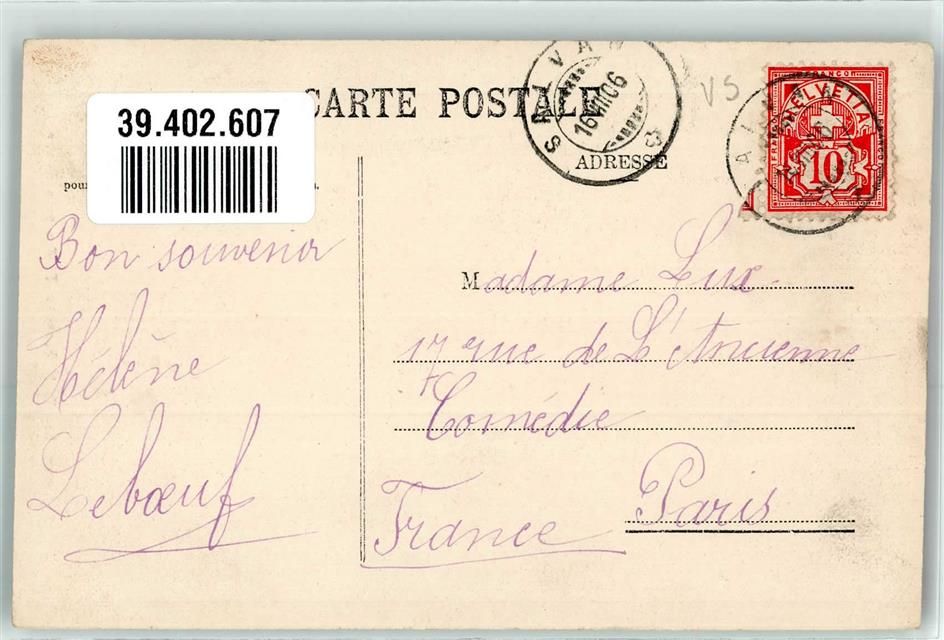 39.402.607
CARTE POSTALE
ADRESSE
pour
SALVAN
16 VII 06
VS
FRANCO
HELVETIA
10
Bon souvenir
Hélène
Lebœuf
Madame Lux
17 rue de L'Ancienne
Comédie
Paris
France